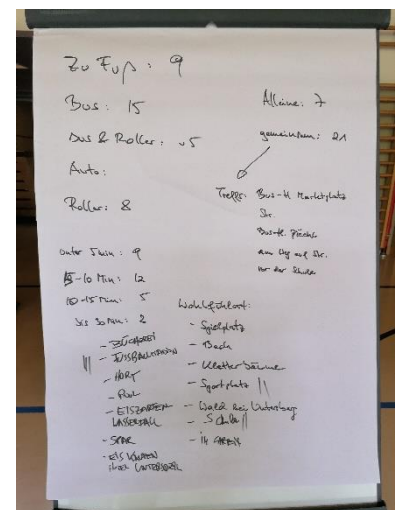 Zu Fuß: 9
Bus: 15
Bus & Roller: 5
Auto:
Roller: 8
Alleine: 7
gemeinsam: 21
Treffp. Bus-H Marktplatz
Str.
Bus-H.
am Weg auf Str.
vor der Schule
unter 5 min: 9
5-10 Min: 12
10-15 Min: 5
bis 30 Min: 2
- BÜCHEREI
- HORT
- Pool
- EISZAPFEN
WASSERFALL
- SPAR
- EIS
Wohlfühlort:
- Spielplatz
- Bach
- Kletterbäume
- Sportplatz
- Wald bei Unterberg
- Schule